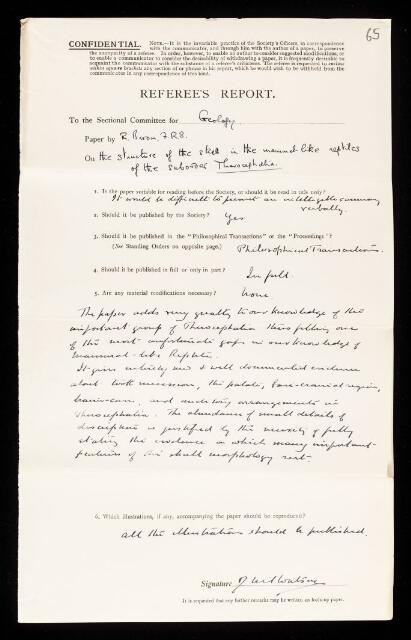 65
CONFIDENTIAL. NOTE.—It is the invariable practice of the Society's Officers, in correspondence
with the communicator, and through him with the author of a paper, to preserve
the anonymity of a referee. In order, however, to enable an author to consider suggested modifications, or
to enable a communicator to consider the desirability of withdrawing a paper, it is frequently desirable to
acquaint the communicator with the substance of a referee's criticisms. The referee is requested to enclose
within square brackets any section of or phrase in his report, which he would wish to be withheld from the
communicator in any correspondence of this kind.
REFEREE'S REPORT.
To the Sectional Committee for Geology
Paper by R. Broom. F.R.S.
On the structure of the skull in the mammal-like reptiles
of the suborder Therocephalia.
1. Is the paper suitable for reading before the Society, or should it be read in title only?
It would be difficult to present an intelligible summary
verbally.
2. Should it be published by the Society? Yes
3. Should it be published in the "Philosophical Transactions" or the "Proceedings"?
(See Standing Orders on opposite page.) Philosophical Transactions.
4. Should it be published in full or only in part? In full.
5. Are any material modifications necessary? None.
The paper adds very greatly to our knowledge of the
important group of Therocephalia thus filling one
of the most unfortunate gaps in our knowledge of
Mammal-like Reptiles.
It gives entirely new & well documented evidence
about tooth succession, the palate, region,
brain-case, and auditory arrangements in
Therocephalia. The abundance of small details of
description is justified by the necessity of fully
stating the evidence on which many important
features of skull morphology rest
6. Which illustrations, if any, accompanying the paper should be reproduced?
All the illustrations should be published.
Signature D M S Watson
It is requested that any further remarks may be written on foolscap paper.